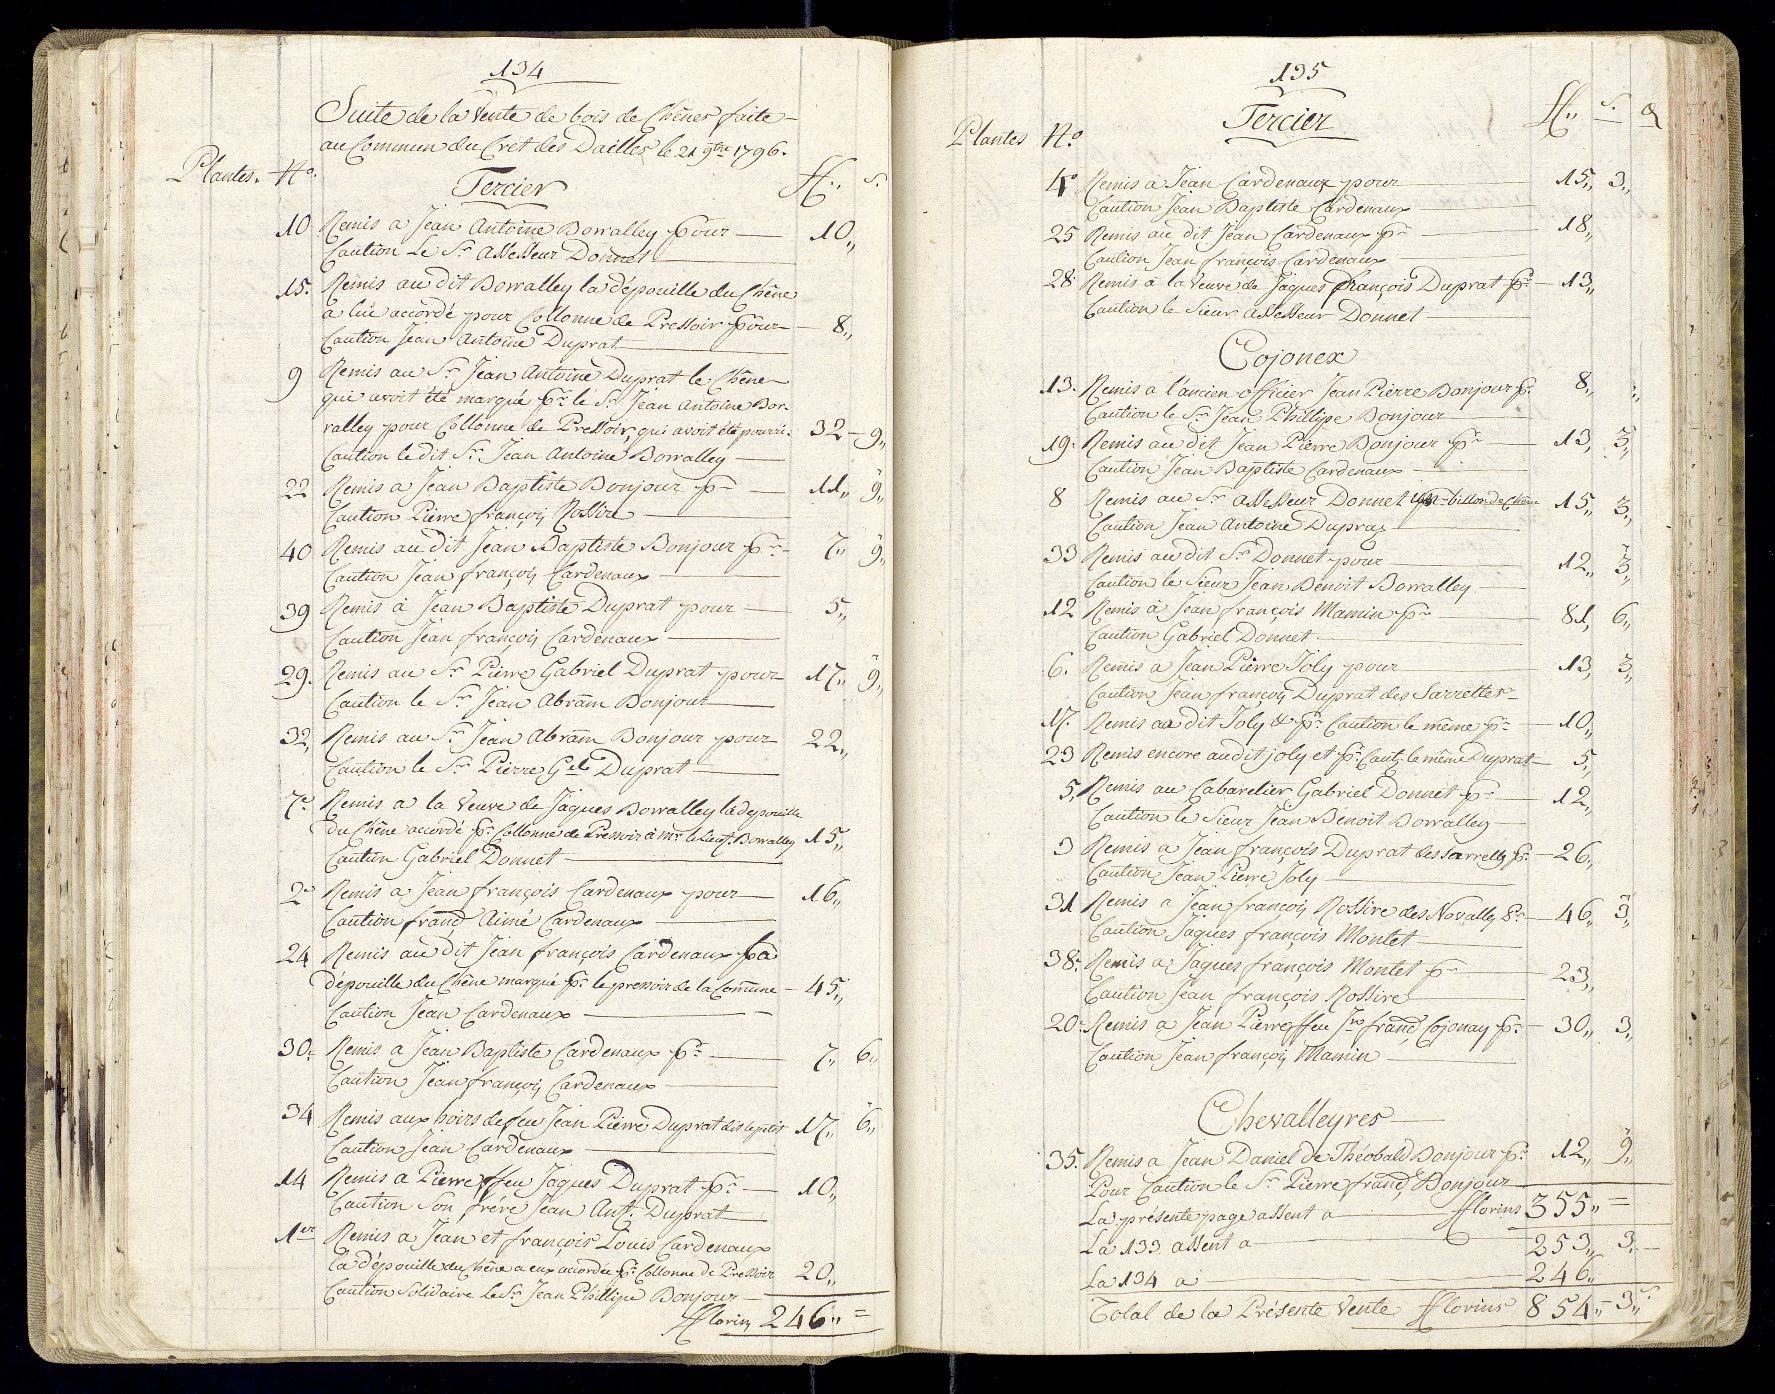 134
Suite de la Vente de bois de Chênes faite
au Commun du Cret des Dailles le 21 9bre 1796.
Plantes. No. Tercier ff.,, s.
10 Remis a Jean Antoine Borralley pour 10,,
Caution Le Sr. Assesseur Donnet
15. Remis au dit Borralley la dépouille du Chêne
a lui accordé pour Collonne de Pressoir pour 8,,
Caution Jean Antoine Duprat
9 Remis au Sr. Jean Antoine Duprat le Chêne
qui avoit été marqué pr. le Sr. Jean Antoine Bor-
ralley pour Collonne de Pressoir, qui avoit été pourri. 32 - 9,,
Caution le dit Sr. Jean Antoine Borralley
22 Remis a Jean Baptiste Bonjour pr. 11,, 9,,
Caution Pierre françois Rossire
40 Remis au dit Jean Baptiste Bonjour pr. 7,, 9,,
Caution Jean françois Cardenaux
39 Remis à Jean Baptiste Duprat pour 5,,
Caution Jean françois Cardenaux
29. Remis au Sr. Pierre Gabriel Duprat pour 17,, 9,,
Caution le Sr. Jean Abram Bonjour
32, Remis au Sr. Jean Abram Bonjour pour 22,,
Caution le Sr. Pierre Gel. Duprat
7e Remis a la Veuve de Jaques Borralley la depouille
du Chêne accordé pr. Collonne de Pressoir à Mr. le Lieut. Borralley 15,,
Caution Gabriel Donnet
2e Remis a Jean françois Cardenaux pour 16,,
Caution franç. Aimé Cardenaux
24 Remis au dit Jean françois Cardenaux la
dépouille du Chêne marqué pr. le pressoir de la Comune 45,,
Caution Jean Cardenaux
30e Remis a Jean Baptiste Cardenaux pr. 7,, 6,,
Caution Jean françois Cardenaux
34 Remis aux hoirs de feu Jean Pierre Duprat dit le petit 17,, 6,,
Caution Jean Cardenaux
14 Remis a Pierre ffeu Jaques Duprat pr. 10,,
Caution Son frére Jean Ant. Duprat
1er Remis a Jean et françois Louis Cardenaux
la dépouille du Chêne a eux accordée pr. Collonne de Pressoir 20,,
Caution Solidaire Le Sr. Jean Phillipe Bonjour
fflorins 246,, =
135
Plantes No. Tercier ff,, s. d
4e Remis a Jean Cardenaux pour 15,, 3,,
Caution Jean Baptiste Cardenaux
25 Remis au dit Jean Cardenaux pr. 18,,
Caution Jean françois Cardenaux
28. Remis à la Veuve de Jaques François Duprat pr. 13,,
Caution le Sieur Assesseur Donnet
Cojonex
13. Remis a l'ancien officier Jean Pierre Bonjour pr. 8,, ,,
Caution le Sr. Jean Phillipe Bonjour
19. Remis au dit Jean Pierre Bonjour pr. 13, 3,,
Caution Jean Baptiste Cardenaux
8 Remis au Sr. Assesseur Donnet billon de Chêne 15,, 3,,
Caution Jean Antoine Dupraz
33 Remis au dit Sr. Donnet pour 12,, 3,,
Caution le Sieur Jean Benoit Borralley
12 Remis à Jean françois Mamin pr. 81, 6,,
Caution Gabriel Donnet
6. Remis a Jean Pierre Joly pour 13, 3,,
Caution Jean françois Duprat des Sarrettes
17. Remis au dit Joly & pr. Caution le même pr. 10,,
23 Remis encore au dit joly et pr. Caut. le même Duprat 5,,
5, Remis au Cabaretier Gabriel Donnet pr. 12,,
Caution le Sieur Jean Benoit Borralley
3 Remis a Jean françois Duprat des Sarrettes pr. 26,,
Caution Jean Pierre Joly
31 Remis a Jean françois Rossire des Novally Pr. 46,, 3,,
Caution Jaques françois Montet
38e Remis a Jaques françois Montet pr. 23,,
Caution Jean françois Rossire
20e Remis a Jean Pierre ffeu franç. Cojonay pr. 30,, 3,,
Caution Jean françois Mamin
Chevalleyres
35. Remis a Jean Daniel de Théobald Bonjour pr. 12,, 9,,
Pour Caution le Sr. Pierre franç. Bonjour
La présente page assent a fflorins 355,, =
La 133 assent a 253,, 3,
La 134 a 246,,
Total de la Présente Vente fflorins 854,, 3,,s.